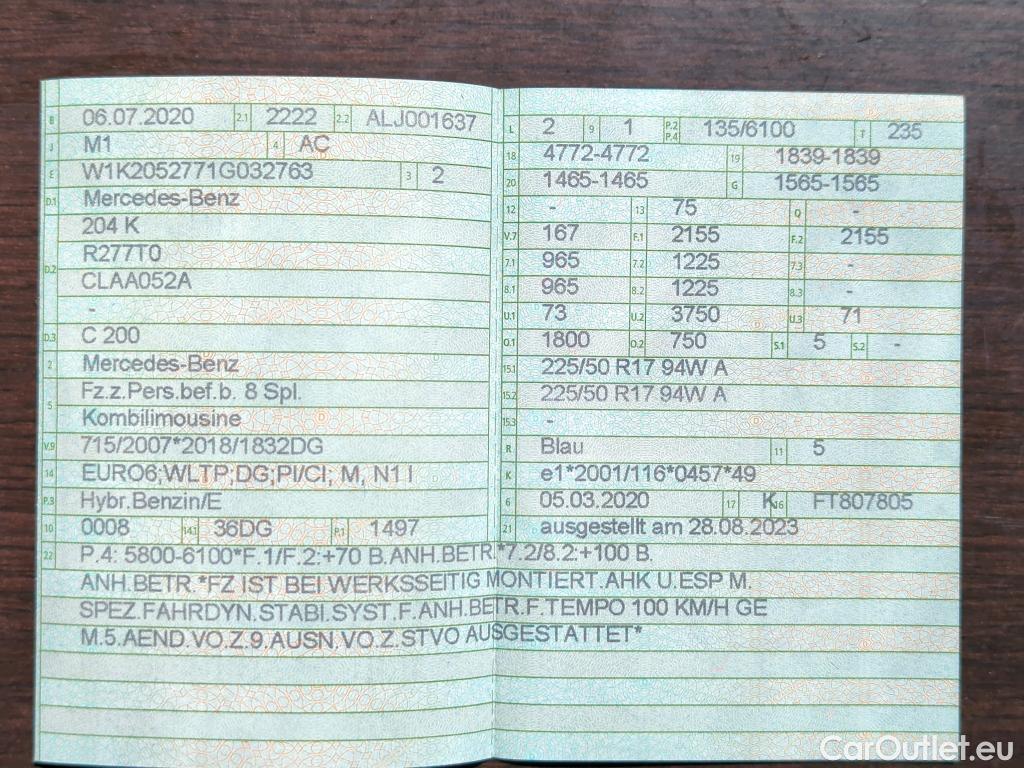 B 06.07.2020 2.1 2222 2.2 ALJ001637
J M1 4 AC
E W1K2052771G032763 3 2
D.1 Mercedes-Benz
204 K
D.2 R277T0
CLAA052A
-
D.3 C 200
2 Mercedes-Benz
5 Fz.z.Pers.bef.b. 8 Spl.
Kombilimousine
V.9 715/2007*2018/1832DG
14 EURO6;WLTP;DG;PI/CI; M, N1 I
P.3 Hybr.Benzin/E
10 0008 14.1 36DG P.1 1497
L 2 9 1 P.2 P.4 135/6100 T 235
18 4772-4772 19 1839-1839
20 1465-1465 G 1565-1565
12 - 13 75 Q -
V.7 167 F.1 2155 F.2 2155
7.1 965 7.2 1225 7.3 -
8.1 965 8.2 1225 8.3 -
U.1 73 U.2 3750 U.3 71
O.1 1800 O.2 750 S.1 5 S.2 -
15.1 225/50 R17 94W A
15.2 225/50 R17 94W A
15.3 -
R Blau 11 5
K e1*2001/116*0457*49
6 05.03.2020 17 K 16 FT807805
21 ausgestellt am 28.08.2023
22 P.4: 5800-6100*F.1/F.2:+70 B.ANH.BETR.*7.2/8.2:+100 B.
ANH.BETR.*FZ IST BEI WERKSSEITIG MONTIERT.AHK U.ESP M.
SPEZ.FAHRDYN.STABI.SYST.F.ANH.BETR.F.TEMPO 100 KM/H GE
M.5.AEND.VO.Z.9.AUSN.VO.Z.STVO AUSGESTATTET*
CarOutlet.eu